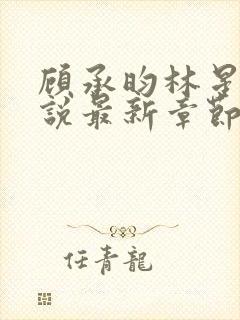 顾承昀林星
說最新章節
任青龍